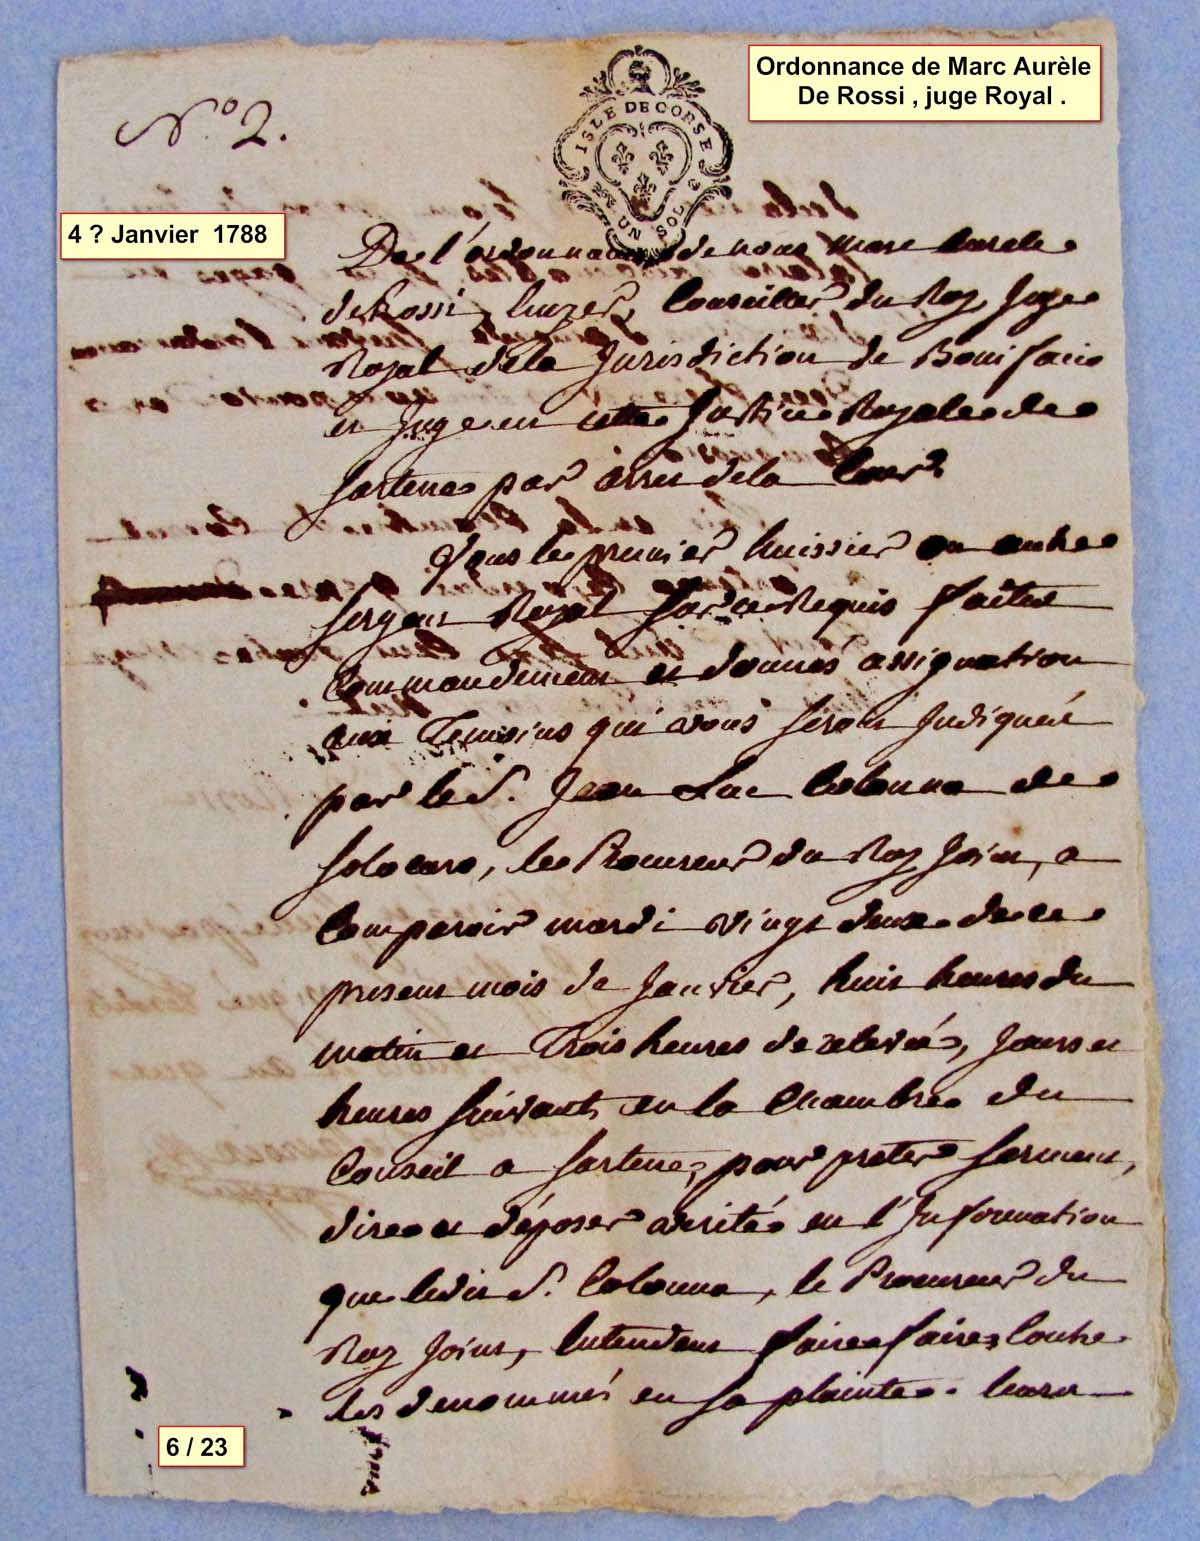 Ordonnance de Marc Aurèle
De Rossi , juge Royal .
N.º 2.
ISLE DE CORSE
UN SOL
4 ? Janvier 1788
De l'ordonnance de nous Marc Aurele
de Rossi Conseiller du Roy, Juge
Royal dela Jurisdiction de Bonifacio
et Juge en cette Justice Royale de
Sartene par arret dela Cour
Vous le premier huissier ou autre
sergent Royal sur ce Requis faites
Commandement et donnés assignation
aux Temoins qui vous seront Indiqués
par le S. Jean Luc Colonna de
Solocaro, le Procureur du Roy Joint, a
Comparoir mardi vingt deux de ce
present mois de Janvier, huit heures du
matin et Trois heures de relevée, Jours et
heures suivants en la Chambre du
Conseil a Sartene, pour preter serment,
dire et déposer verité en l'Information
que ledit S. Colonna, le Procureur du
Roy Joint, Entendent faire faire Contre
les denommés en sa plainte.
6 / 23